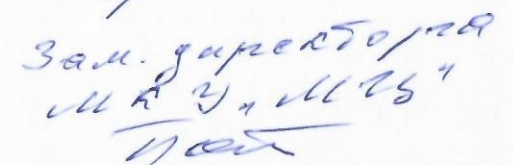 Зам. директора
МКУ „МЦ"